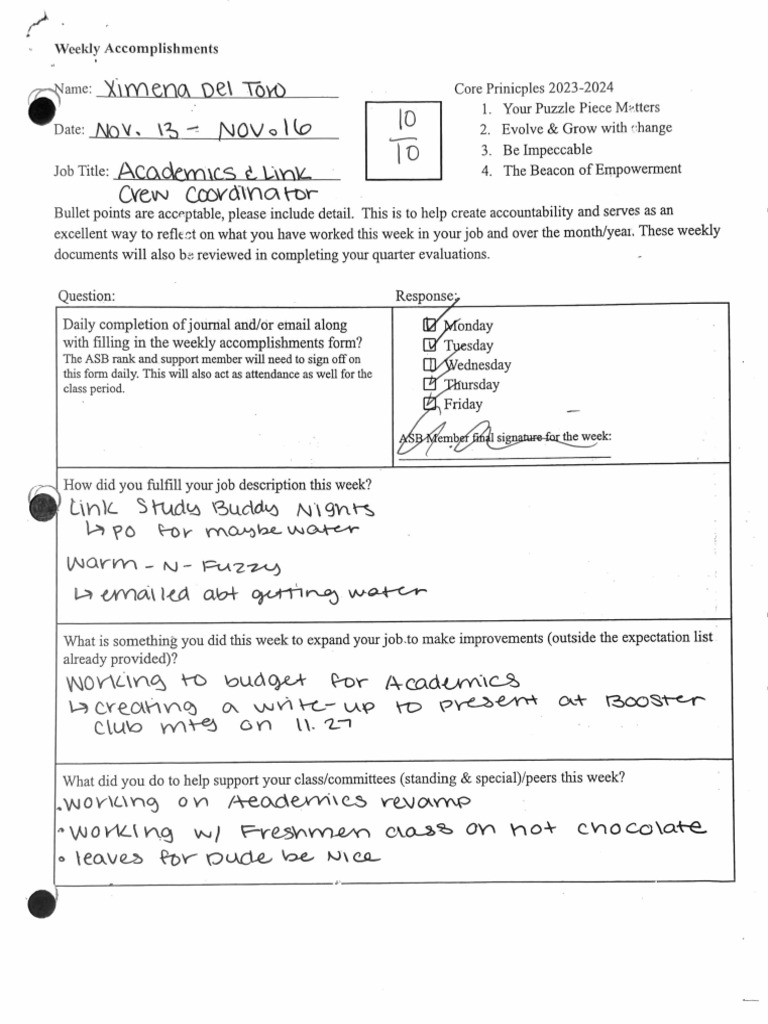 Weekly Accomplishments
Name: Ximena Del Toro
Date: Nov. 13 - Nov. 16
Job Title: Academics & Link
Crew Coordinator
10
10
Core Prinicples 2023-2024
1. Your Puzzle Piece Matters
2. Evolve & Grow with change
3. Be Impeccable
4. The Beacon of Empowerment
Bullet points are acceptable, please include detail. This is to help create accountability and serves as an
excellent way to reflect on what you have worked this week in your job and over the month/year. These weekly
documents will also be reviewed in completing your quarter evaluations.
Question:
Response:
Daily completion of journal and/or email along
with filling in the weekly accomplishments form?
The ASB rank and support member will need to sign off on
this form daily. This will also act as attendance as well for the
class period.
Monday
Tuesday
Wednesday
Thursday
Friday
ASB Member final signature for the week:
How did you fulfill your job description this week?
Link Study Buddy Nights
↳ PO for maybe water
Warm-N-Fuzzy
↳ emailed abt getting water
What is something you did this week to expand your job to make improvements (outside the expectation list
already provided)?
Working to budget for Academics
↳ creating a write-up to present at Booster
Club mtg on 11.27
What did you do to help support your class/committees (standing & special)/peers this week?
• working on Academics revamp
• Working w/ Freshmen class on hot chocolate
• leaves for Dude be Nice